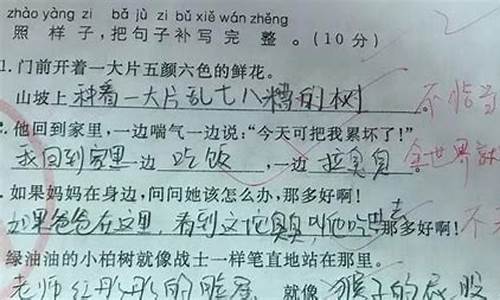 zhào yàng zi bǎ jù zi bǔ xiě wán zhěng
照样子,把句子补写完整。(10分)
1.门前开着一大片五颜六色的鲜花。
山坡上种着一大片乱七八糟的树 不恰当
他回到家里,一边喘气一边说:“今天可把我累坏了!”
我回到家里一边吃饭,一边拉臭臭。 全世界就
.如果妈妈在身边,问问她该怎么办,那多好啊!
如果爸爸在这里,看到这坨臭臭叫他吃去那多好啊! 不
绿油油的小柏树就像战士一样笔直地站在那里。
老师红彤彤的脸蛋 就像猴子的屁股